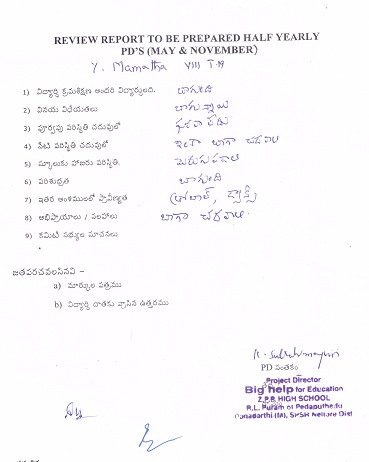 REVIEW REPORT TO BE PREPARED HALF YEARLY
PD'S (MAY & NOVEMBER)
Y. Mamatha VIII
1) విద్యార్థి క్రమశిక్షణ అందరి విద్యార్థులది. బాగుంది
2) వినయ విధేయతలు బాగున్నాయి
3) పూర్వపు పరిస్థితి చదువులో ఫరవాలేదు
4) నేటి పరిస్థితి చదువులో ఇంకా బాగా చదవాలి
5) స్కూలుకు హాజరు పరిస్థితి. మెరుగుపడాలి
6) పరిశుభ్రత బాగుంది
7) ఇతర అంశములలో ప్రావీణ్యత
8) అభిప్రాయాలు / సలహాలు బాగా చదవాలి.
9) కమిటీ సభ్యుల సూచనలు
జతపరచవలసినవి –
a) మార్కుల పత్రము
b) విద్యార్థి దాతకు వ్రాసిన ఉత్తరము
PD సంతకం
Project Director
Big help for Education
Z.P.P. HIGH SCHOOL
R.L. Puram